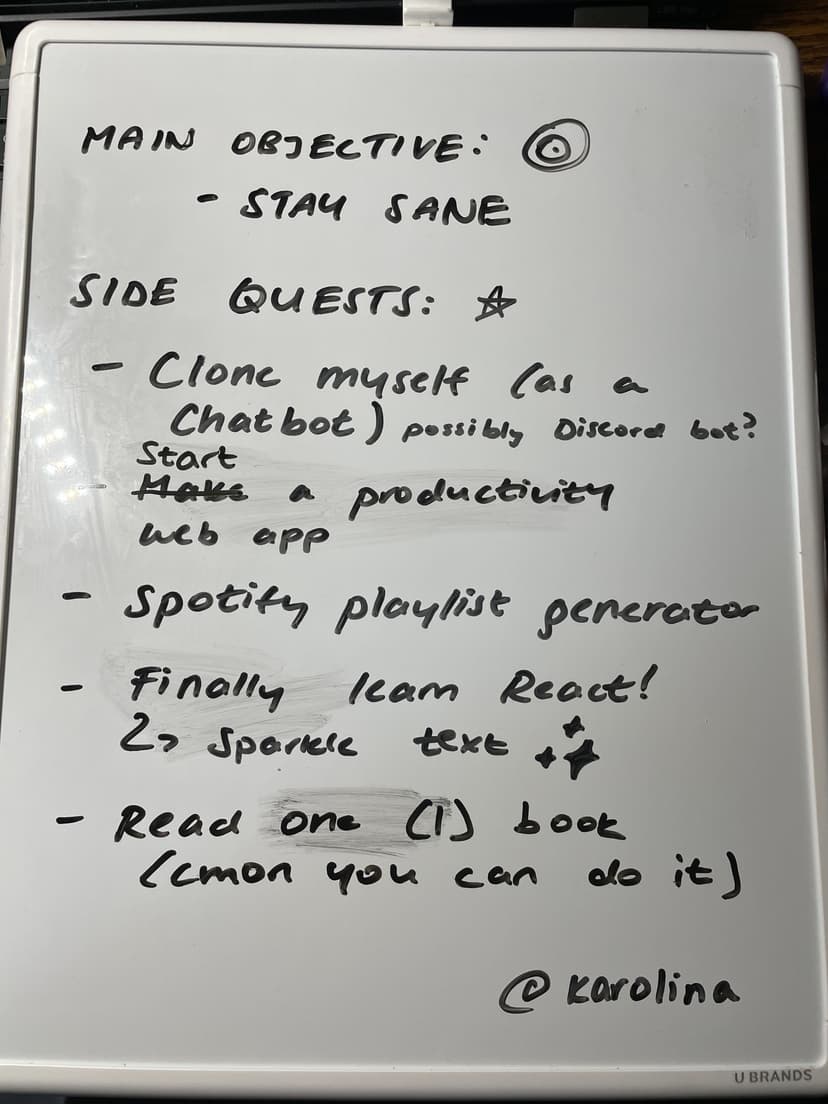 MAIN OBJECTIVE:
- STAY SANE
SIDE QUESTS:
- Clone myself (as a
Chatbot) possibly Discord bot?
Start
- Make a productivity
web app
- Spotify playlist generator
- Finally learn React!
↳ Sparkle text
- Read one (1) book
(cmon you can do it)
@karolina
U BRANDS